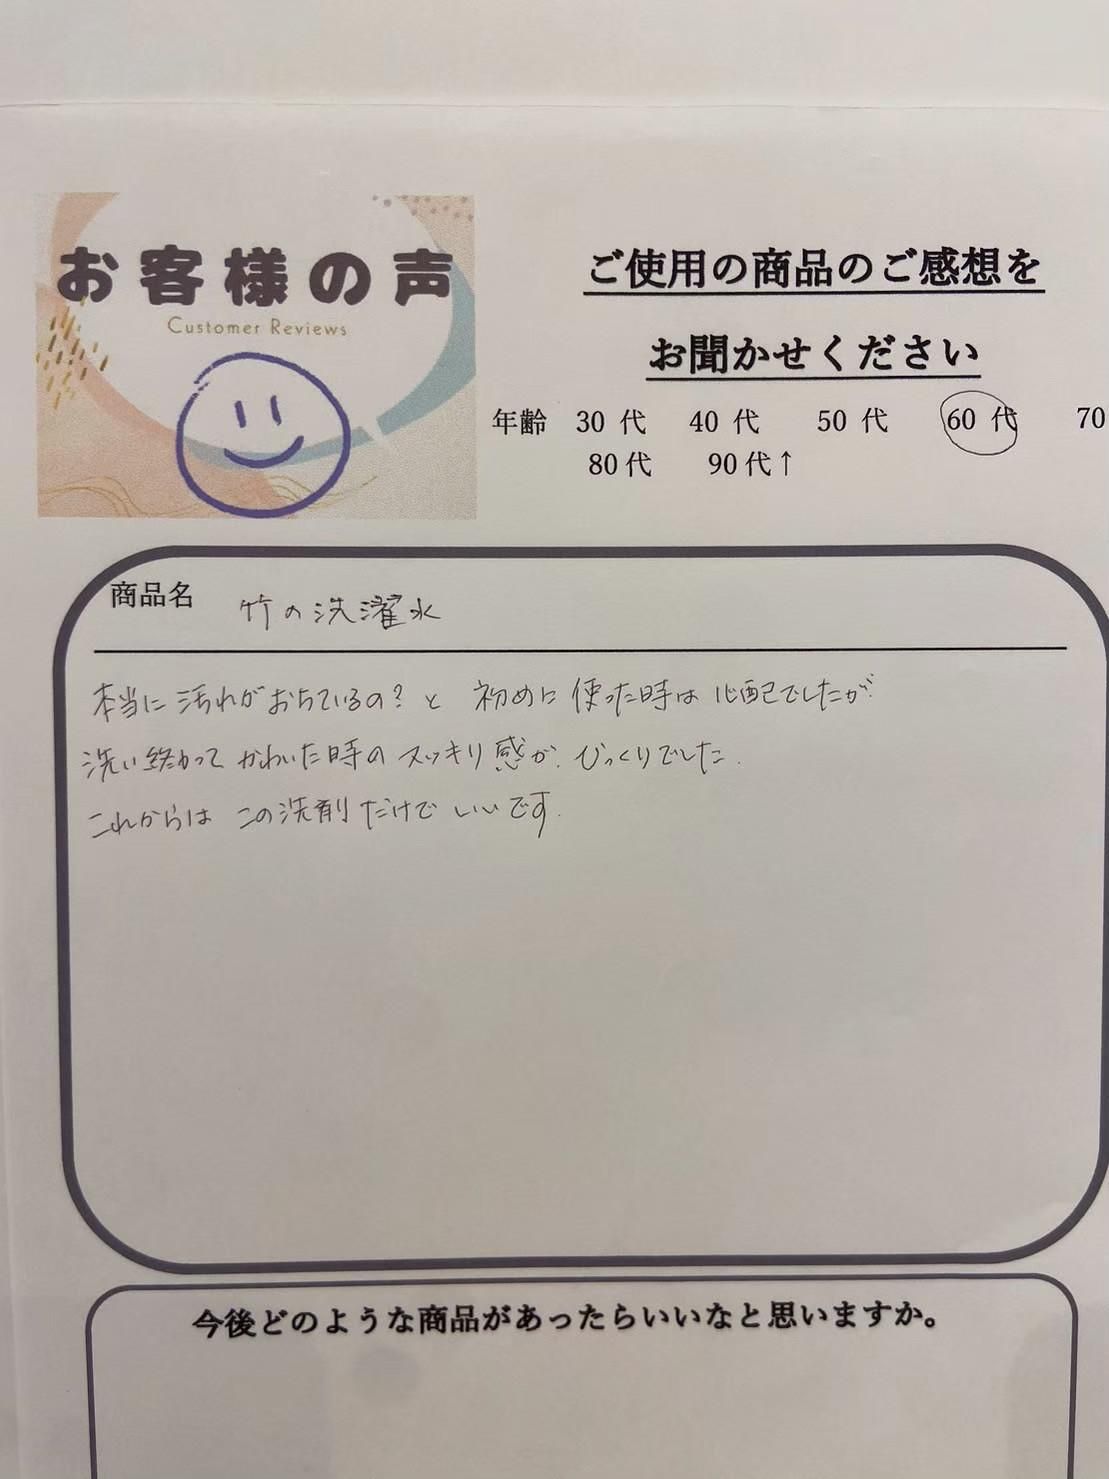 お客様の声
Customer Reviews
ご使用の商品のご感想を
お聞かせください
年齢 30代 40代 50代 60代 70
80代 90代↑
商品名 竹の洗濯水
本当に汚れがおちているの?と 初めに使った時は心配でしたが
洗い終わって かわいた時のスッキリ感が びっくりでした.
これからは この洗剤だけで いいです.
今後どのような商品があったらいいなと思いますか。